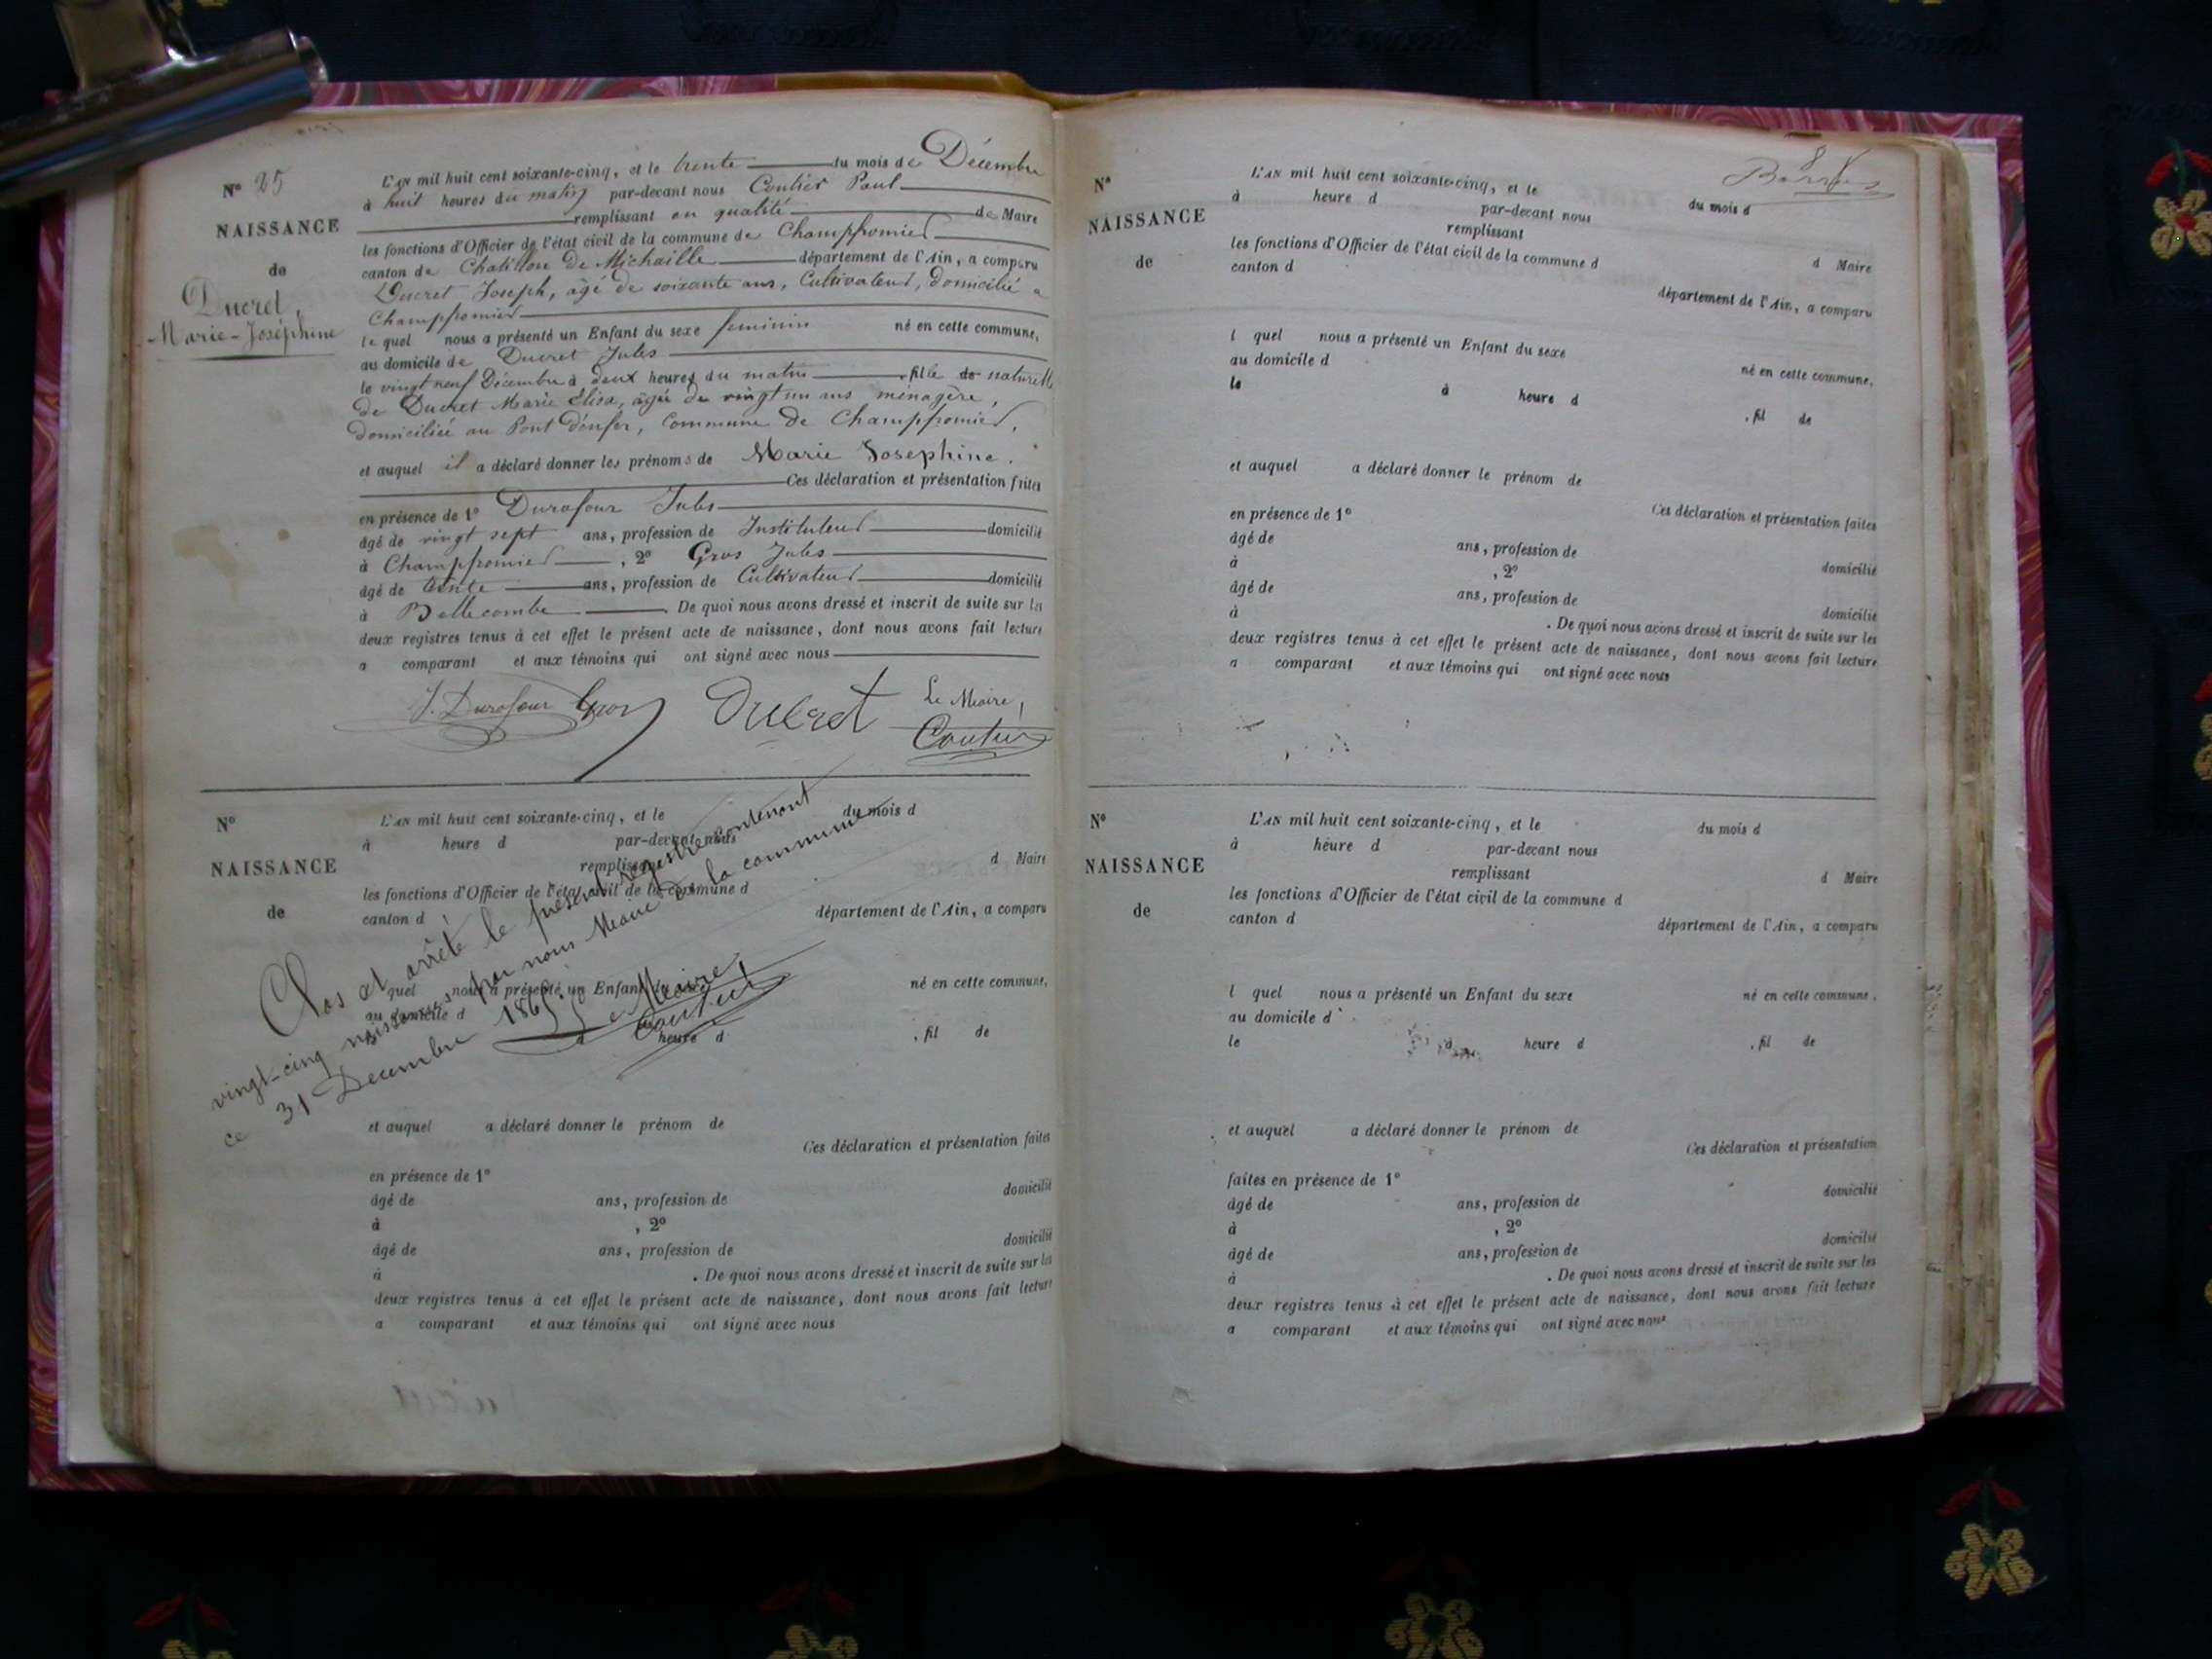 N° 25
NAISSANCE
de
Ducret
Marie-Joséphine
L'AN mil huit cent soixante-cinq, et le trente du mois de Décembre
à huit heures du matin par-devant nous Coutier Paul
remplissant en qualité de Maire
les fonctions d'Officier de l'état civil de la commune de Champfromier
canton de Chatillon de Michaille département de l'Ain, a comparu
Ducret Joseph, âgé de soixante ans, Cultivateur, domicilié a
Champfromier
le quel nous a présenté un Enfant du sexe feminin né en cette commune,
au domicile de Ducret Jules
le vingt neuf Décembre à deux heures du matin , fille de naturelle
de Ducret Marie Elisa, âgée de vingt un ans ménagère,
domiciliée au Pont d'enfer, Commune de Champfromier,
et auquel il a déclaré donner les prénoms de Marie Josephine.
Ces déclaration et présentation faites
en présence de 1° Durafour Jules
âgé de vingt sept ans, profession de Instituteur domicilié
à Champfromier , 2° Gros Jules
âgé de trente ans, profession de Cultivateur domicilié
à Bellecombe . De quoi nous avons dressé et inscrit de suite sur les
deux registres tenus à cet effet le présent acte de naissance, dont nous avons fait lecture
a comparant et aux témoins qui ont signé avec nous
J. Durafour Gros Ducret Le Maire,
Coutier
N°
NAISSANCE
de
L'AN mil huit cent soixante-cinq, et le du mois d
à heure d par-devant nous
remplissant d Maire
les fonctions d'Officier de l'état civil de la commune d
canton d département de l'Ain, a comparu
quel nous a présenté un Enfant du sexe né en cette commune,
au domicile d
heure d , fil de
Clos et arrêté le présent registre contenant
vingt-cinq naissances par nous Maire de la commune
ce 31 Décembre 1865. Le Maire,
Coutier
et auquel a déclaré donner le prénom de
Ces déclaration et présentation faites
en présence de 1°
âgé de ans, profession de domicilié
à , 2°
âgé de ans, profession de domicilié
à . De quoi nous avons dressé et inscrit de suite sur les
deux registres tenus à cet effet le présent acte de naissance, dont nous avons fait lecture
a comparant et aux témoins qui ont signé avec nous
N°
NAISSANCE
de
L'AN mil huit cent soixante-cinq, et le du mois d
à heure d par-devant nous
remplissant d Maire
les fonctions d'Officier de l'état civil de la commune d
canton d département de l'Ain, a comparu
l quel nous a présenté un Enfant du sexe né en cette commune,
au domicile d
le à heure d , fil de
et auquel a déclaré donner le prénom de
Ces déclaration et présentation faites
en présence de 1°
âgé de ans, profession de domicilié
à , 2°
âgé de ans, profession de domicilié
à . De quoi nous avons dressé et inscrit de suite sur les
deux registres tenus à cet effet le présent acte de naissance, dont nous avons fait lecture
a comparant et aux témoins qui ont signé avec nous
N°
NAISSANCE
de
L'AN mil huit cent soixante-cinq, et le du mois d
à heure d par-devant nous
remplissant d Maire
les fonctions d'Officier de l'état civil de la commune d
canton d département de l'Ain, a comparu
l quel nous a présenté un Enfant du sexe né en cette commune,
au domicile d
le à heure d , fil de
et auquel a déclaré donner le prénom de
Ces déclaration et présentation
faites en présence de 1°
âgé de ans, profession de domicilié
à , 2°
âgé de ans, profession de domicilié
à . De quoi nous avons dressé et inscrit de suite sur les
deux registres tenus à cet effet le présent acte de naissance, dont nous avons fait lecture
a comparant et aux témoins qui ont signé avec nous